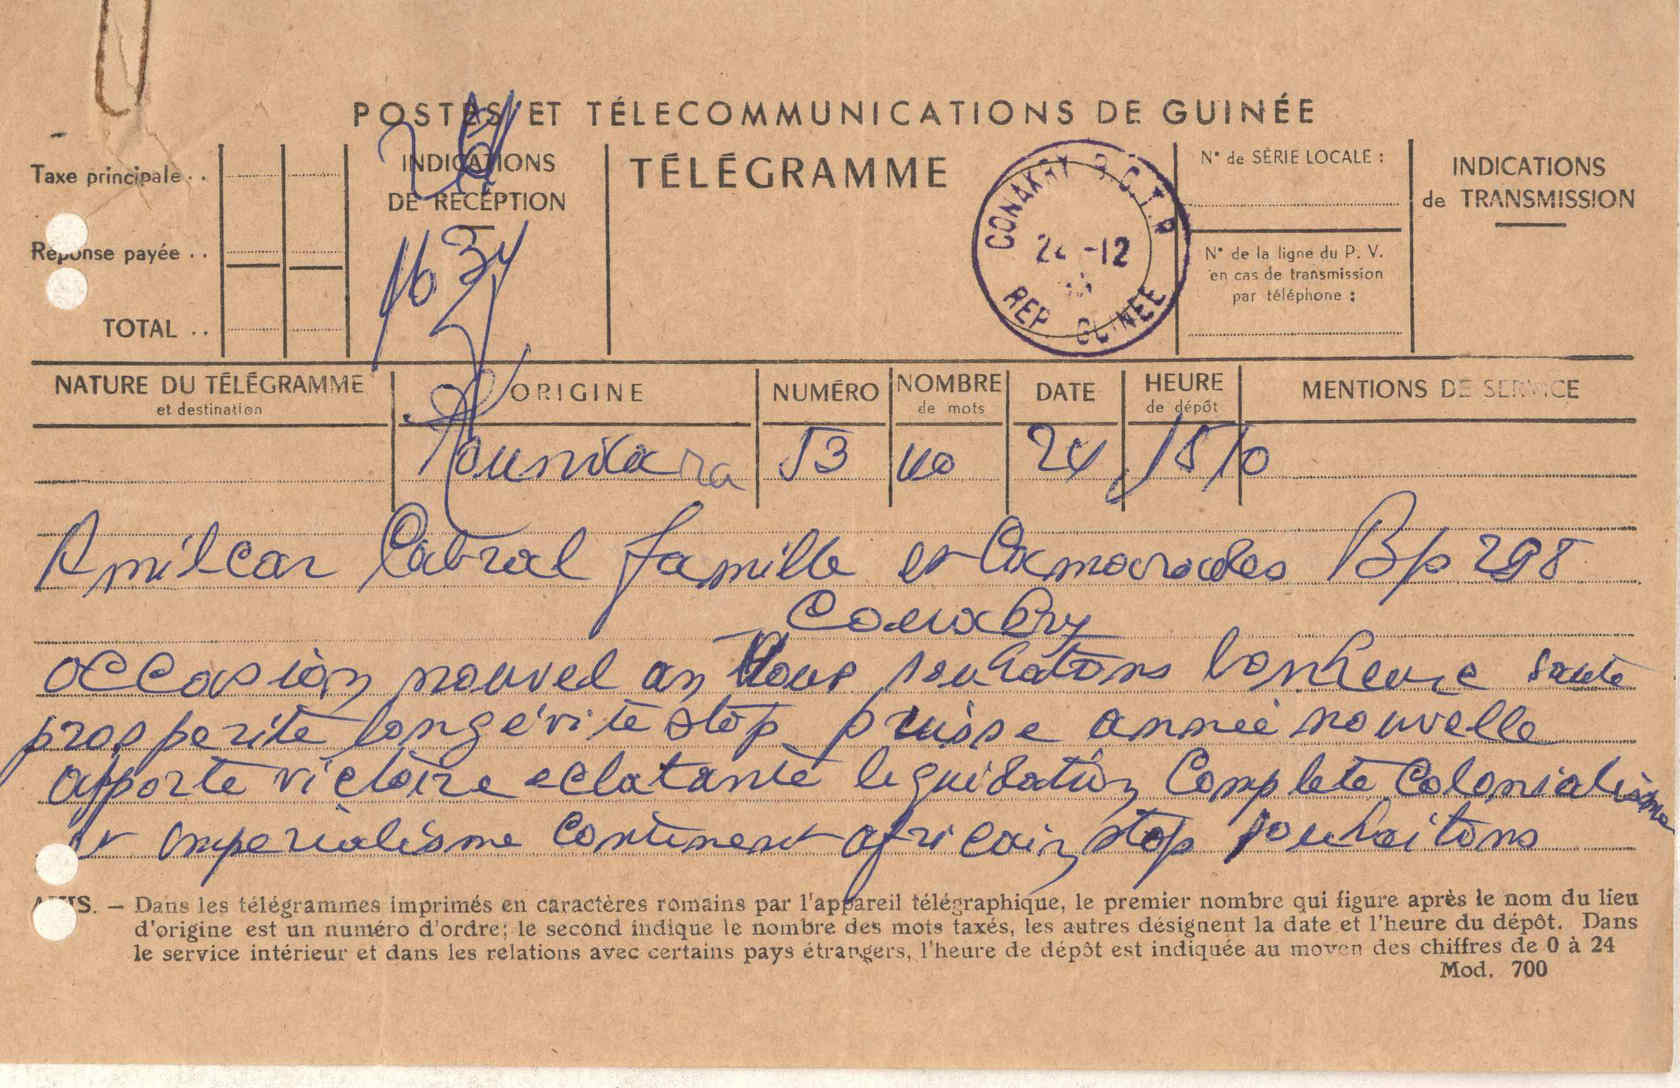 POSTES ET TÉLECOMMUNICATIONS DE GUINÉE
Taxe principale . .
Réponse payée . .
TOTAL . .
INDICATIONS
DE RÉCEPTION
24
1634
TÉLÉGRAMME
CONAKRY R.C.T.P
24 -12
REP GUINEE
N° de SÉRIE LOCALE :
N° de la ligne du P. V.
en cas de transmission
par téléphone :
INDICATIONS
de TRANSMISSION
NATURE DU TÉLÉGRAMME
et destination
ORIGINE
NUMÉRO
NOMBRE
de mots
DATE
HEURE
de dépôt
MENTIONS DE SERVICE
53 40 24 1510
Amilcar Cabral famille et Camarades Bp 298
Conakry
occasion nouvel an vous souhaitons bonheur santé
prosperite longévité stop puisse année nouvelle
apporte victoire eclatante liquidation Complete Colonialisme
et imperialisme Continent africain stop souhaitons
AVIS. — Dans les télégrammes imprimés en caractères romains par l'appareil télégraphique, le premier nombre qui figure après le nom du lieu
d'origine est un numéro d'ordre; le second indique le nombre des mots taxés, les autres désignent la date et l'heure du dépôt. Dans
le service intérieur et dans les relations avec certains pays étrangers, l'heure de dépôt est indiquée au moyen des chiffres de 0 à 24
Mod. 700